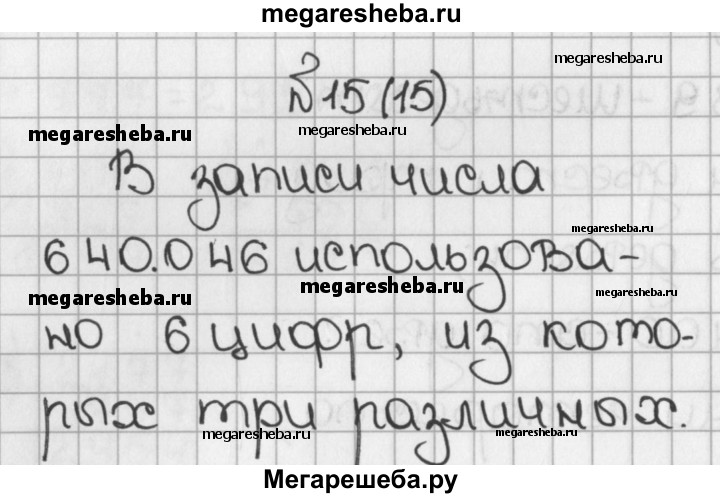 megaresheba.ru
megaresheba.ru
№15(15)
megaresheba.ru
megaresheba.ru
В записи числа
megaresheba.ru
640.046 использова-
megaresheba.ru
megaresheba.ru
megaresheba.ru
но 6 цифр, из кото-
рых три различных.
megaresheba.ru
megaresheba.ru
Мегарешеба.ру